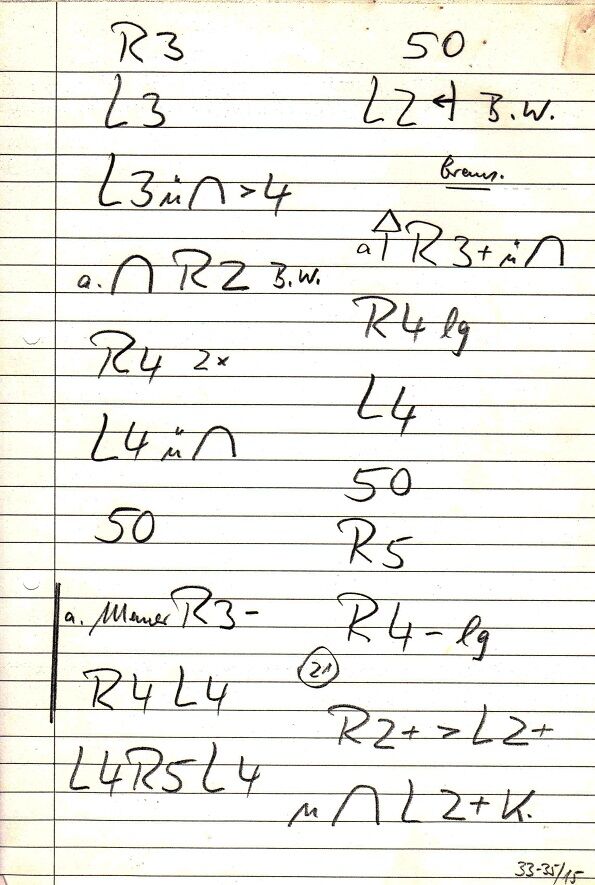 R3
L3
L3 ü ∩ > 4
a. ∩ R2 B.W.
R4 2x
L4 ü ∩
50
a. Mauer R3 -
R4 L4
L4 R5 L4
50
L2 B.W.
brems.
a R3+ ü ∩
R4 lg
L4
50
R5
R4 - lg
21
R2+ > L2+
∩ L2+ K.
33-35/15